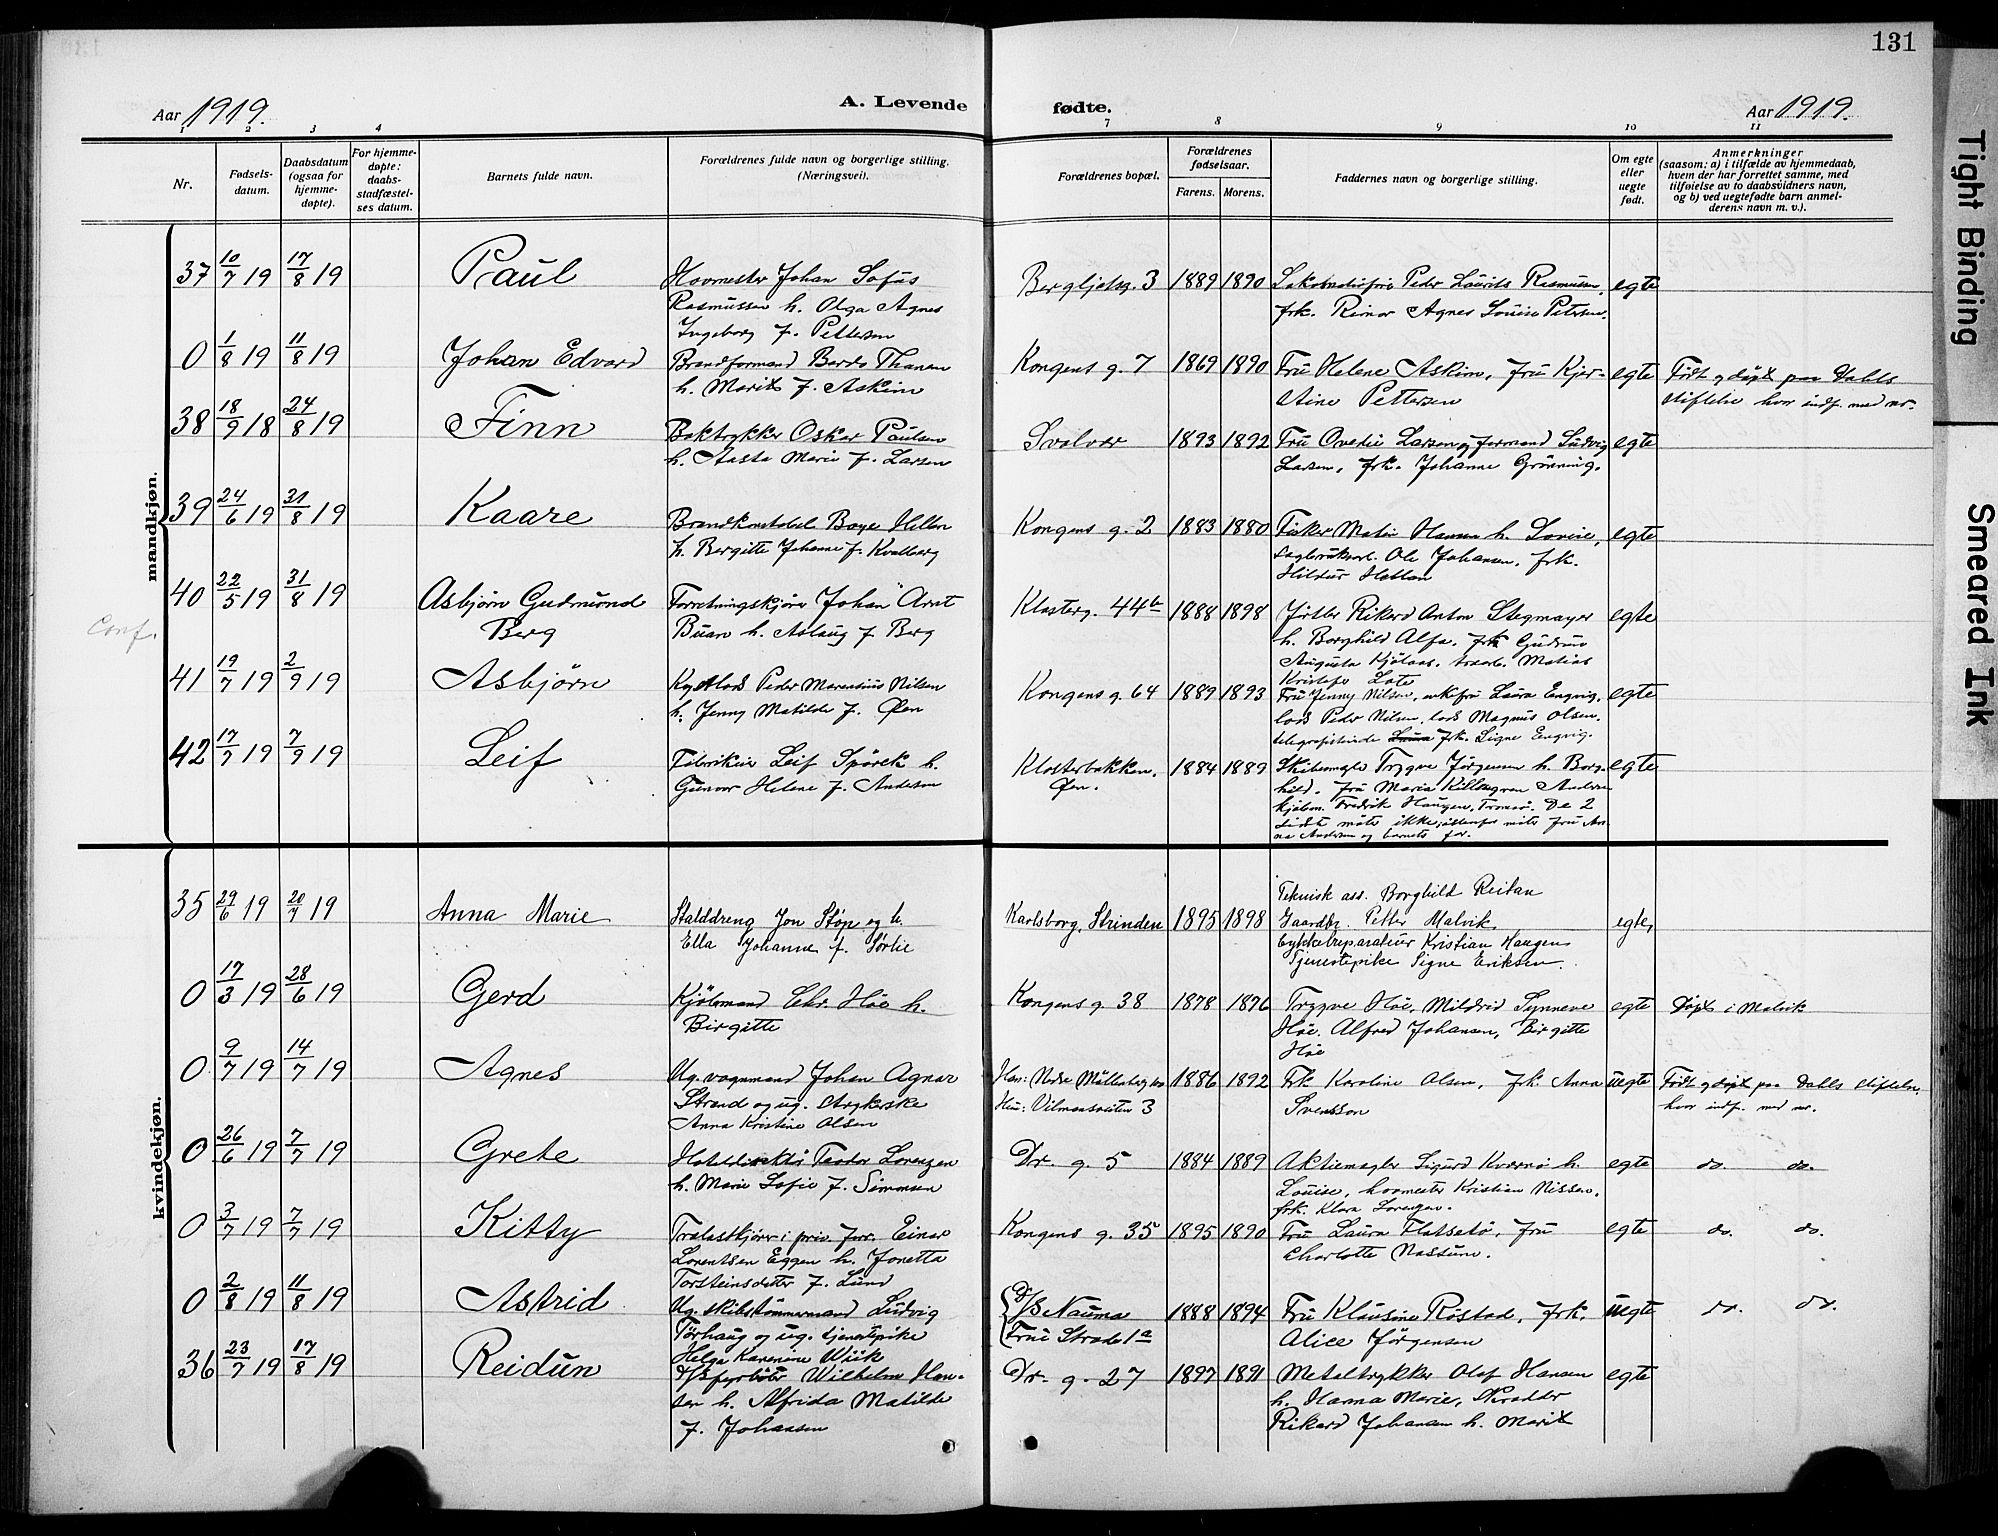 131
Aar 1919.
A. Levende fødte.
Aar 1919.
1 2 3 4 7 8 9 10 11
Nr.
Fødsels-
datum.
Daabsdatum
(ogsaa for
hjemme-
døpte).
For hjemme-
døpte:
daabs-
stadfæstel-
ses datum.
Barnets fulde navn.
Forældrenes fulde navn og borgerlige stilling.
(Næringsvei).
Forældrenes bopæl.
Forældrenes
fødselsaar.
Farens. Morens.
Faddernes navn og borgerlige stilling.
Om egte
eller
uegte
født.
Anmerkninger
(saasom: a) i tilfælde av hjemmedaab,
hvem der har forrettet samme, med
tilføielse av to daabsvidners navn,
og b) ved uegtefødte barn anmel-
derens navn m. v.).
mandkjøn.
37 10/7 19 17/8 19 Paul
Hovmester Johan Sofus
Rasmussen h. Olga Agnes
Ingeborg f. Pettersen
Bergljotsg. 3 1889 1890
Peder Laurits Rasmussen,
frk. Agnes Louise Petersen.
egte
0 1/8 19 11/8 19 Johan Edvard
Brandformand Berdo Thanem
h. Marit f. Askim
Kongens g. 7 1869 1890
Fru Helene Askim, fru Kjer-
stine Pettersen
egte
Født og døpt paa Dahls
stiftelse hvor indf. med nr.
38 18/9 18 24/8 19 Finn
Boktrykker Oskar Paulsen
h. Aasta Marie f. Larsen
Svolvær 1893 1892
Fru Ovedie Larsen og formand Ludvig
Larsen, frk. Johanne Grønning.
egte
39 24/6 19 31/8 19 Kaare
Brandkonstabel Boye
h. Bergitte Johanne f. Kvalberg
Kongens g. 2 1883 1880
Fisker Hansen h. Lovise,
Ole Johansen, frk.
Hildur
egte
Conf.
40 22/5 19 31/8 19 Asbjørn Gudmund
Berg
Forretningskjører Johan Arnt
Buan h. Aslaug f. Berg
Klosterg. 44b 1888 1898
Rikard Anton Stegmayer
h. Borghild Alfa. frk Gudrun
Augusta Kjølaas. Matias
Kristofer
egte
41 19/7 19 2/9 19 Asbjørn
Kystlods Peder Marensius Nilsen
h. Jenny Matilde f. Øien
Kongens g. 64 1889 1893
Fru Jenny Nilsen, enkefru Laura Engvig,
lods Peder Nilsen, lods Magnus Olsen.
telegrafistinde Laura frk. Signe Engvig.
egte
42 17/7 19 7/9 19 Leif
Fabrikeier Leif Spørck h.
Gunvor Helene f. Andersen
Klosterbakken.
Øen.
1884 1889
Skibsmegler Trygve Jørgensen h. Borg-
hild. fru Maria Killengren Andersen
kjøbm. Fredrik Haugen, Tromsø. De 2
sidste møter ikke, møter fru An-
na Andersen og barnets far.
egte
kvindekjøn.
35 29/6 19 20/7 19 Anna Marie
Stalddreng Jon Støp og h.
Ella Johanne f. Sørlie
Karlsborg, Strinden 1895 1898
Teknisk ass. Borghild Reitan
Gaardbr. Petter Malvik,
Cykkelreparatiør Kristian Haugen
Tjenestepike Signe Eriksen.
egte,
0 17/3 19 28/6 19 Gerd
Kjølsmand Chr. Høe h.
Birgitte
Kongens g. 38 1878 1876
Trygve Høe, Mildrid Synneve
Høe. Alfred Johansen, Birgitte
Høe
egte
Døpt i Malvik
0 9/7 19 14/7 19 Agnes
Ug. vognmand Johan Agnar
Strand og ug. strykerske
Anna Kristine Olsen
Han: Nedre Møllenberg
Hun: Vilmansveiten 3
1886 1892
Frk Karoline Olsen, frk. Anna
Svensson
uegte
Født og døpt paa Dahls stiftelse,
hvor indf. med nr.
0 26/6 19 7/7 19 Grete
Hoteldirektør Teodor Lorenzen
h. Marie Sofie f. Simonsen
Dr. g. 5 1884 1889
Aktiemegler Sigurd Kvernø h.
Louise, hovmester Kristian Nissen,
frk. Klara Lorenzen.
egte
do. do.
0 3/7 19 7/7 19 Kitty
Trelastkjører i priv. forr. Einar
Lorentsen Eggen h. Jonetta
Torsteinsdatter f. Lund
Kongens g. 35 1895 1890
Fru Laura Flatsetø, fru
Charlotte Nassum.
egte
do. do.
0 2/8 19 11/8 19 Astrid
Ug. skibstømmermand Ludvig
Tørhaug og ug. tjenestepike
Helga Karenine Wiik
D/S Nauma
Frue Strade 1a
1888 1894
Fru Klausine Røstad, frk.
Alice Jørgensen
uegte
do. do.
36 23/7 19 17/8 19 Reidun
D/Sfyrbøter Wilhelm Han-
sen h. Alfrida Matilde
f. Johansen
Dr. g. 27 1897 1891
Metaltrykker Olaf Hansen
h. Hanna Marie, Skrædder
Rikard Johansen h. Marit
egte
Tight Binding
Smeared Ink